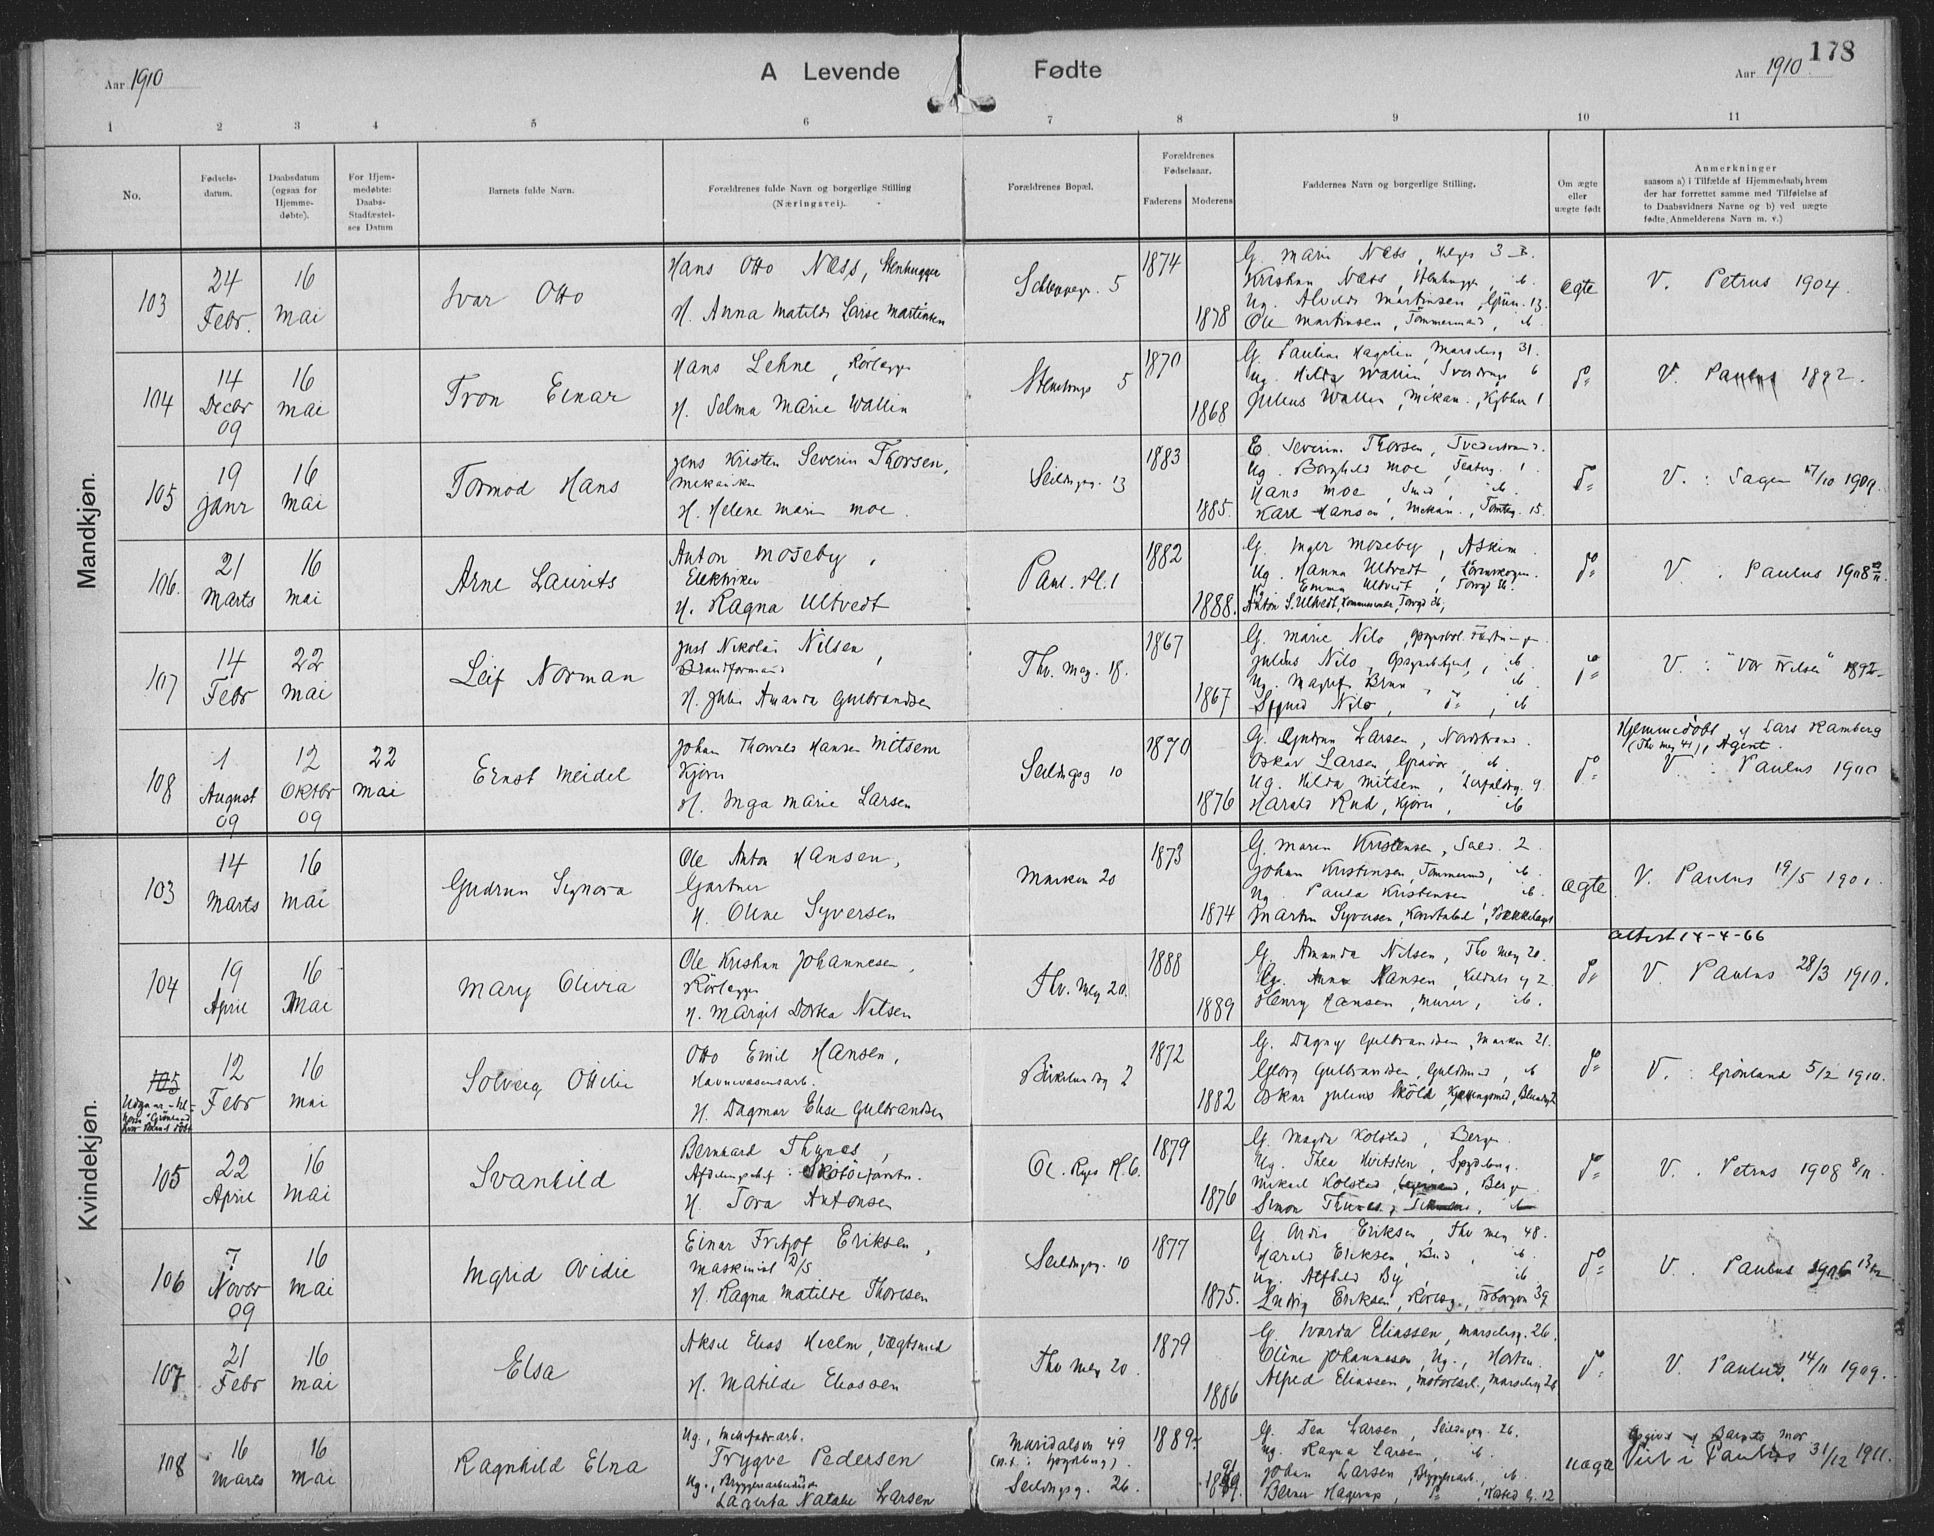 178
Aar 1910
A Levende Fødte
Aar 1910.
1 2 3 4 5 6 7 8 9 10 11
No.
Fødsels-
datum.
Daabsdatum
(ogsaa for
Hjemme-
døbte).
For Hjem-
medøbte:
Daabs-
Stadfæstel-
ses Datum
Barnets fulde Navn.
Forældrenes fulde Navn og borgerlige Stilling
(Næringsvei).
Forældrenes Bopæl.
Forældrenes
Fødselsaar.
Faderens
Moderens
Faddernes Navn og borgerlige Stilling.
Om ægte
eller
uægte født
Anmerkninger
saasom a) i Tilfælde af Hjemmedaab, hvem
der har forrettet samme med Tilføielse af
to Daabsvidners Navne og b) ved uægte
fødte, Anmelderens Navn m. v.)
Mandkjøn.
103
24
Febr.
16
Mai
Ivar Otto
Hans Otto Næss, Stenhugger
H. Anna Matilde Larse Martinsen
Schleppegr. 5
1874
1878
G. Marie Næss, 3
Kristian Næss, Stenhugger, ib.
Ug. Alvilde Martinsen, Grün. 13
Ole Martinsen, Tømmermand, ib.
ægte
V. Petrus 1904.
104
14
Decbr
09
16
Mai
Tron Einar
Hans Lehne, Rørlegger
H. Selma Marie Wallin
Stenstrups 5
1870
1868
G. Pauline Hagelin, Marselisg 31.
Ug. Hilda Wallin, Sverdrups 6
Julius Wallin, Mekan., 1
do
V. Paulus 1892.
105
19
Janr
16
Mai
Tormod Hans
Jens Kristen Severin Thorsen,
Mekaniker
H. Helene Marie Moe.
Seildugsg. 13
1883
1885.
E. Severin Thorsen, Tvedestrand.
Ug. Borghild Moe, 1.
Hans Moe, Smed, ib.
Karl Hansen, Mekan., Tomteg. 15.
do
V. : Sagen 17/10 1909.
106
21
Marts
16
Mai
Arne Laurits
Anton Moseby,
Elektriker
H. Ragna Ultvedt
Paul. Pl. 1
1882
1888.
G. Inger Moseby, Askim.
Ug. Hanna Ultvedt, Lørenskogen.
Ug. Emma Ultvedt,
Anton S. Ultvedt,
do
V. : Paulus 1908
107
14
Febr
22
Mai
Leif Norman
Just Nikolai Nilsen,
Brandformand
H. Julie Amanda Gulbrandsen
Thv. Mey. 18.
1867
1867
G. Marie Nilo,
Julius Nilo, Opsynsbetjent, ib.
Ug. Brun, ib.
Sigurd Nilo, do, ib
do
V. : "Vor Frelser" 1892
108
1
August
09
12
Oktbr
09
22
Mai
Ernst Meidel
Johan Thorvald Hansen Mitsem
Kjører
H. Inga Marie Larsen
Seildugsg 10
1870
1876
G. Gudrun Larsen, Nordstrand.
Oskar Larsen, Gravør, ib.
Ug. Hilda Mitsem, 9
Harald Rud, Kjører, ib
do
Hjemmedøbt af Lars Ramberg
(Thv mey 41), Agent.
V. : Paulus 1900
Kvindekjøn.
103
14
Marts
16
Mai
Gudrun Signora
Ole Anton Hansen,
Gartner
H. Oline Syversen
Marken 20
1873
1874
G. Maren Kristensen, 2
Johan Kristensen, Tømmermd, ib.
Ug. Paula Kristensen ib.
Martin Syversen, Konstabel, Bækkelaget
ægte
V. Paulus 19/5 1901.
104
19
April
16
Mai
Mary Olivia
Ole Kristian Johannesen,
Rørlegger
H. Margit Dortea Nilsen
Thv. Mey 20.
1888
1889
G. Amanda Nilsen, Thv Mey 20.
Ug. Anna Hansen, 2
Henry Hansen, Murer, ib.
do
Attest 14-4-66
V. Paulus 28/3 1910.
105
12
Febr
16
Mai
Solveig Ottilie
Otto Emil Hansen,
Havnevæsensarb.
H. Dagmar Elise Gulbrandsen
Birkelundsg 2
1872
1882
G. Dagny Gulbrandsen, Marken 21.
Georg Gulbrandsen, Guldsmed, ib
Oskar Julius Sköld,
do
V. : Grønland 5/2 1910.
105
22
April
16
Mai
Svanhild
Bernhard Thynes,
H. Tora Antonsen
Ol. Ryes Pl. 6.
1879
1876
G. Magda Kolstad, Bergen
Ug. Thea Hvitsten, Spydeberg.
Mikael Kolstad, Bergen
Simon Thynes,
do
V. Petrus 1908 8/11
106
7
Novbr
09
16
Mai
Ingrid Ovidie
Einar Fritjof Eriksen,
Maskinist D/S
H. Ragna Matilde Thoresen
Seildugsg. 10
1877
1875.
G. Eriksen, Thv Mey 48.
Harald Eriksen, Bud, ib.
Ug. Alfhild By, ib.
Ludvig Eriksen, 39
do
V. Paulus 1906
107
21
Febr
16
Mai
Elsa
Aksel Elias Hielm, Vægtsmed
H. Matilde Eliassen
Thv Mey 20.
1879
1886
G. Ivarda Eliassen, Marselisg. 26.
Oline Johannesen, Ug., Horten.
Alfred Eliassen, Marselisg 26
do
V. Paulus 14/11 1909.
108
16
Marts
16
Mai
Ragnhild Elna
Ug.,
Trygve Pedersen
Ug., Bryggeriarbeiderske
Lagerta Natalie Larsen
Maridalsvn 49
Seildugsg. 26.
1889
G. Tea Larsen, Seildugsg. 26.
Ug. Ragna Larsen, ib.
Johan Larsen, Bryggeriarb., ib.
Berner Hagerup, 12
uægte
Opgivet af Barnets Mor
Viet i Paulus 31/12 1911.